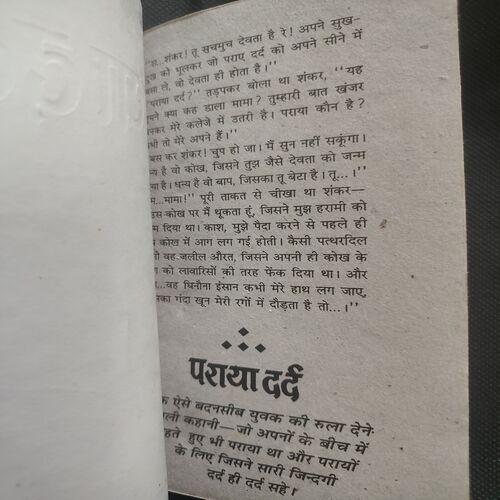 शंकर! तू सचमुच देवता है रे! अपने सुख-
को भूलकर जो पराए दर्द को अपने सीने में
ले, वो देवता ही होता है।"
"पराया दर्द?" तड़पकर बोला था शंकर, "यह
क्या कह डाला मामा? तुम्हारी बात खंजर
मेरे कलेजे में उतरी है। पराया कौन है?
तो मेरे अपने हैं।"
कर शंकर! चुप हो जा। मैं सुन नहीं सकूंगा।
है वो कोख, जिसने तुझ जैसे देवता को जन्म
है। धन्य है वो बाप, जिसका तू बेटा है। तू...।"
...मामा!" पूरी ताकत से चीखा था शंकर—
कोख पर मैं थूकता हूं, जिसने मुझ हरामी को
दिया था। काश, मुझे पैदा करने से पहले ही
कोख में आग लग गई होती। कैसी पत्थरदिल
वह जलील औरत, जिसने अपनी ही कोख के
को लावारिसों की तरह फेंक दिया था। और
...वह घिनौना इंसान कभी मेरे हाथ लग जाए,
गंदा खून मेरी रगों में दौड़ता है तो...।"
पराया दर्द
ऐसे बदनसीब युवक की रुला देने
कहानी—जो अपनों के बीच में
हुए भी पराया था और परायों
के लिए जिसने सारी जिन्दगी
दर्द ही दर्द सहे।